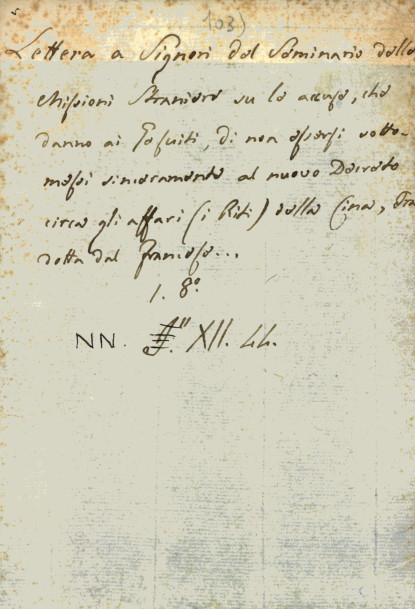 103)
Lettera a Signori del Seminario delle
Missioni Straniere su le accuse, che
danno ai Gesuiti, di non essersi sotto-
messi sinceramente al nuovo Decreto
circa gli affari (i Riti) della Cina, Tra
dotta dal Francese...
1. 8°.
NN. XII. 44.